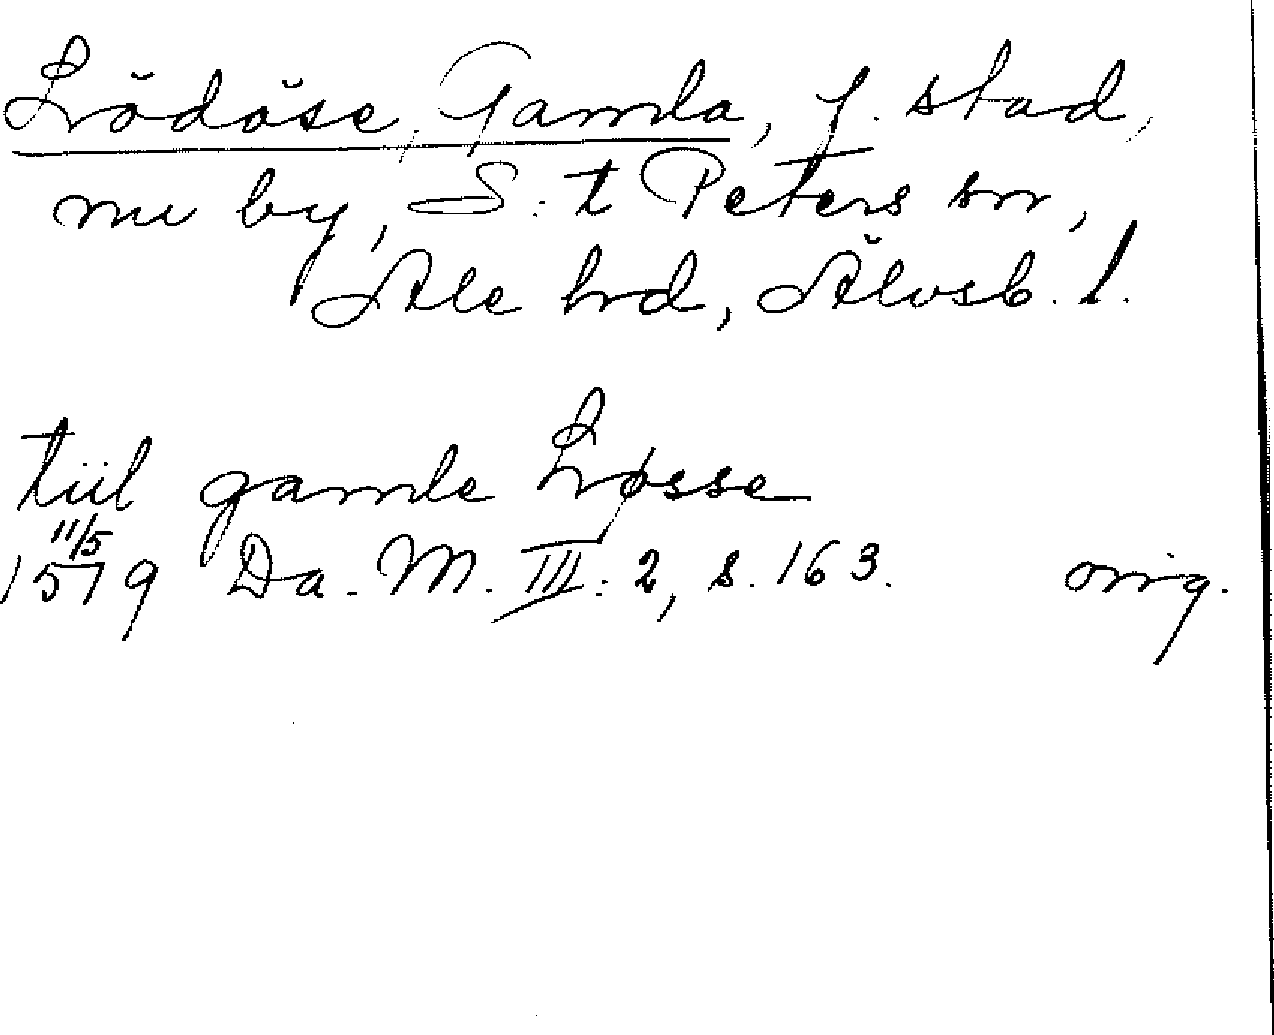 Lödöse, Gamla, f. stad,
nu by, S:t Peters sn,
Ale hd, Älvsb. l.
tiil gamle Løsse
11/5
1579 Da. M. III: 2, s. 163. orig.